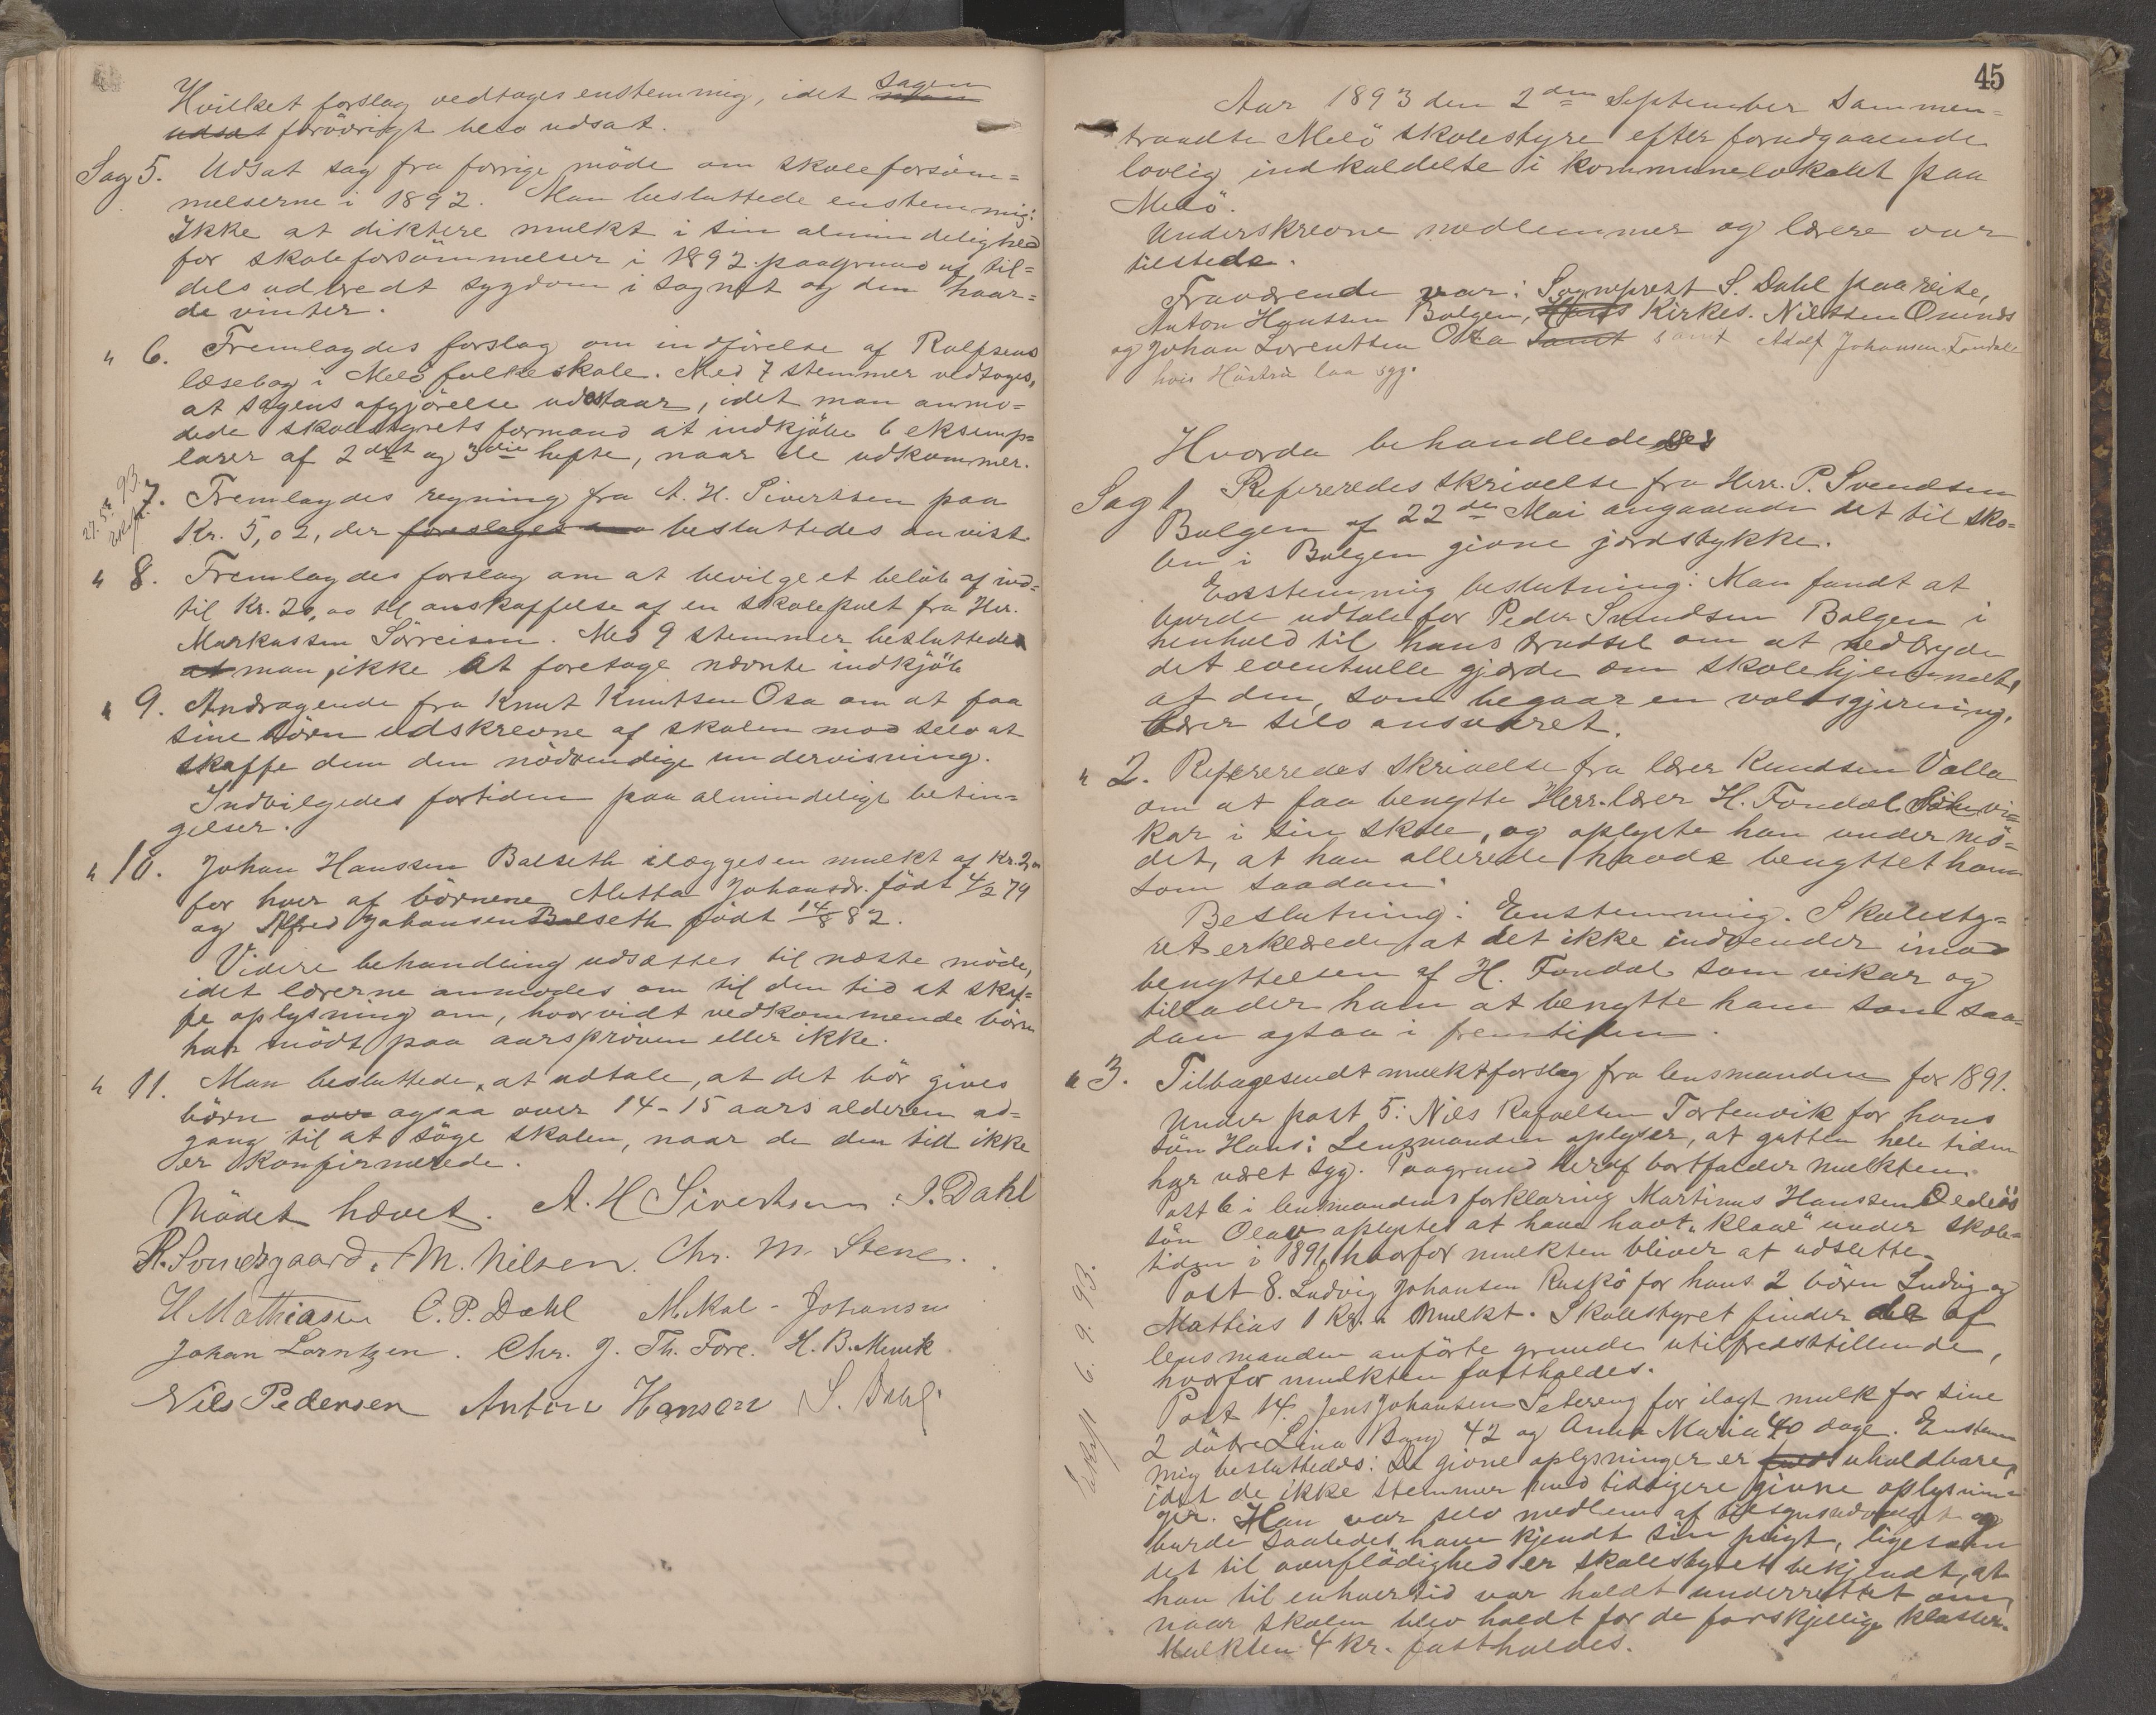 Hvilket forslag vedtoges enstemmig, idet sagen
udsat forövrigt blev udsat.
Sag 5. Udsat sag fra forrige möde om skoleforsöm=
melserne i 1892. Man besluttede enstemmig:
Ikke at diktere mulkt i sin almindelighed
for skoleforsömmelser i 1892 paagrund af til=
dels udbredt sygdom i sognet og den haar=
de vinter.
" 6. Fremlagdes forslag om indförelse af Rolfsens
læsebog i Melö folkeskole. Med 7 stemmer vedtoges,
at sagens afgjörelse udstaar, idet man anmo=
dede skolestyrets formand at indkjöbe 6 eksemp=
larer af 2det og 3die hefte, naar de udkommer.
7. Fremlagdes regning fra A. H. Sivertsen paa
Kr. 5,02, der foreslages besluttedes anvist.
" 8. Fremlagdes forslag om at bevilge et belöb af ind=
til Kr. 20,00 til anskaffelse af en skolepult fra Hr.
Markussen Sörreisen. Med 9 stemmer besluttedes
at man, ikke at foretage nævnte indkjöb
" 9. Andragende fra Knut Knutsen Osa om at faa
sine börn udskrevne af skolen mod selv at
skaffe dem den nödvendige undervisning.
Indvilgedes fortiden paa almindelige betin=
gelser.
" 10. Johan Hanssen Balseth ilægges en mulkt af Kr. 2,00
for hver af börnene Metta Johansdr. födt 4/2 79
og Alfred Johansen Balseth födt 14/8 82.
Videre behandling udsættes til næste möde,
idet lærerne anmodes om til den tid at skaf=
fe oplysning om, hvorvidt vedkommende börn
har mödt paa aarspröven eller ikke.
" 11. Man besluttede, at udtale, at det bör gives
börn over ogsaa over 14-15 aars alderen ad=
gang til at söge skolen, naar de den tid ikke
er konfirmerede.
Mödet hævet. A. H Sivertsen. J. Dahl
R. Sondsgaard. M. Nilsen. Chr. M. Stene.
H Mathiasen C. P. Dahl Mikal - Johansen
Johan Lorntzen. Chr. J. Th. Fore. H. B. Munk
Nils Pedersen Anton Hansen S. Dahl
45
Aar 1893 den 2den September sammen=
traadte Melö skolestyre efter forudgaaende
lovlig indkaldelse i kommunelokalet paa
Melö.
Underskrevne medlemmer og lærere var
tilstede.
Fraværende var: Sogneprest S. Dahl paa reise,
Anton Hanssen Bolgen, Kirkes. Nilssen Önnes
og Johan Lorentsen Osa samt samt Adolf Johansen Fondal
hvis Hustru laa syg.
Hvorda behandledes
Sag 1 Refereredes skrivelse fra Herr. P. Svendsen
Bolgen af 22de Mai angaaende det til sko=
len i Bolgen givne jordstykke.
Enstemmig beslutning: Man fandt at
burde udtale for Peder Svendsen Bolgen i
henhold til hans trudsel om at nedbryde
det eventuelle gjærde om skolehjemmet,
at den, som begaar en voldsgjerning,
bærer selv ansvaret.
" 2. Refereredes skrivelse fra lærer Knudsen Valla
om at faa benytte Herr. lærer H. Fondal som vi=
kar i sin skole, og oplyste han under mö=
det, at han allerede havde benyttet ham
som saadan.
Beslutning: Enstemmig. Skolesty=
ret erklærede, at det ikke indvender imod
benyttelsen af H. Fondal som vikar og
tillader ham at benytte ham som saa=
dan ogsaa i fremtiden.
" 3. Tilbagesendt mulktforslag fra lensmanden for 1891.
Under post 5: Nils Rafaelsen Tortenvik for hans
sön Hans: Lensmanden oplyser, at gutten hele tiden
har været syg. Paagrund heraf bortfalder mulkten.
Post 6 i lensmandens forklaring Martinus Hanssen
sön Olav oplystes at have havt "klaae" under skole=
tiden i 1891, hvorfor mulkten bliver at udslette.
Post 8. Ludvig Johansen Rusko for hans 2 börn Ludvig og
Mathias 1 kr. i mulkt. Skolestyret finder de af
lensmanden anförte grunde utilfredsstillende,
hvorfor mulkten fastholdes.
Post 14. Jens Johansen Setereng for ilagt mulk for sine
2 döbre Lina Berg 42 og Anna Maria 40 dage. Enstem
mig besluttedes: De givne oplysninger er uholdbare,
idet de ikke stemmer med tidligere givne oplysnin=
ger. Han var selv medlem af tilsynsudvalget og
burde saaledes have kjendt sin pligt, ligesom
det til overflödighed er skolestyret bekjendt, at
han til enhver tid var holdt underrettet om,
naar skolen blev holdt for de forskjellige klasser.
Mulkten 4 kr. fastholdes.
Eksp. 6. 9. 93.